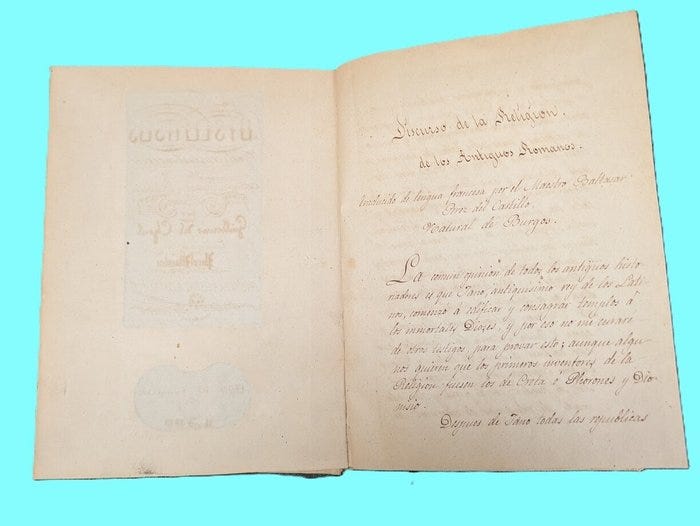 Discurso de la Religion,
de los Antiguos Romanos.
traducido de lengua francesa por el Maestro Baltasar
Prez del Castillo.
Natural de Burgos.
La comun opinion de todos los antiguos histo
riadores es que Jano, antiquisimo rey de los Lati
nos, comenzó á edificar y consagrar templos á
los inmortales Dioses, y por eso no me curaré
de otros testigos, para provar esto; aunque algu
nos quieren que los primeros inventores de la
Religion fuesen los de Creta ó Phorones y Dio
nisio.
Despues de Jano todas las republicas